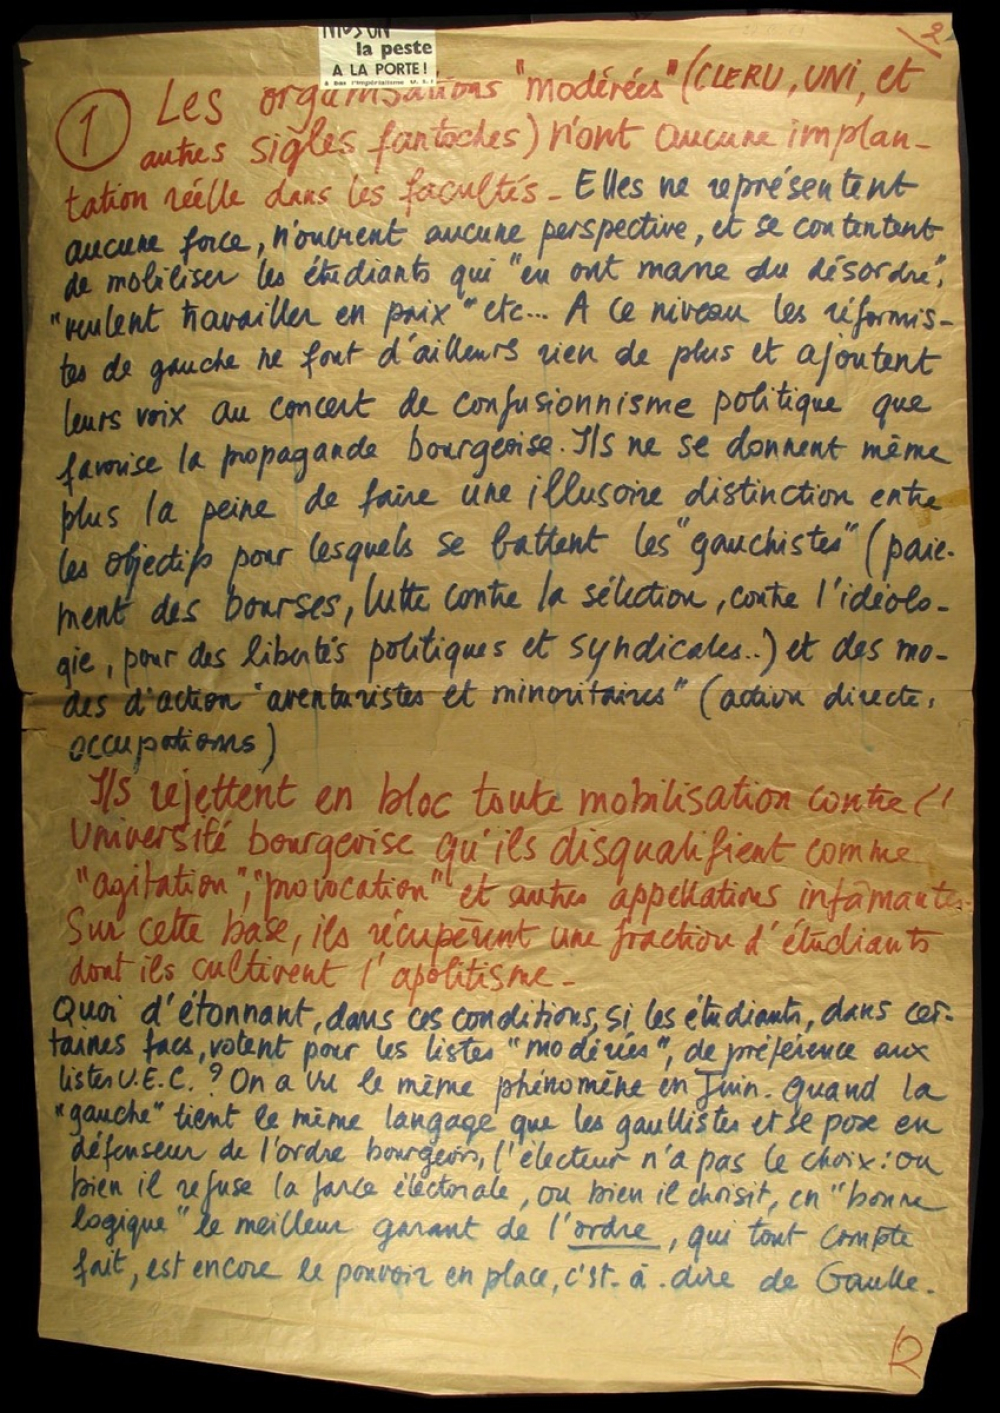 la peste
A LA PORTE !
2
① Les organisations "modérées" (CLERU, UNI, et
autres sigles fantoches) n'ont aucune implan-
tation réelle dans les facultés - Elles ne représentent
aucune force, n'ouvrent aucune perspective, et se contentent
de mobiliser les étudiants qui "en ont marre du désordre",
"veulent travailler en paix" etc... A ce niveau les réformis-
tes de gauche ne font d'ailleurs rien de plus et ajoutent
leurs voix au concert de confusionnisme politique que
favorise la propagande bourgeoise. Ils ne se donnent même
plus la peine de faire une illusoire distinction entre
les objectifs pour lesquels se battent les "gauchistes" (paie-
ment des bourses, lutte contre la sélection, contre l'idéolo-
gie, pour des libertés politiques et syndicales..) et des mo-
des d'action "aventuristes et minoritaires" (action directe,
occupations)
Ils rejettent en bloc toute mobilisation contre l'
Université bourgeoise qu'ils disqualifient comme
"agitation", "provocation" et autres appellations infâmantes.
Sur cette base, ils récupèrent une fraction d'étudiants
dont ils cultivent l'apolitisme -
Quoi d'étonnant, dans ces conditions, si les étudiants, dans cer-
taines facs, votent pour les listes "modérées", de préférence aux
listes U.E.C. ? On a vu le même phénomène en Juin. Quand la
"gauche" tient le même langage que les gaullistes et se pose en
défenseur de l'ordre bourgeois, l'électeur n'a pas le choix : ou
bien il refuse la farce électorale, ou bien il choisit, en "bonne
logique" le meilleur garant de l'ordre, qui tout compte
fait, est encore le pouvoir en place, c'est-à-dire de Gaulle.
R